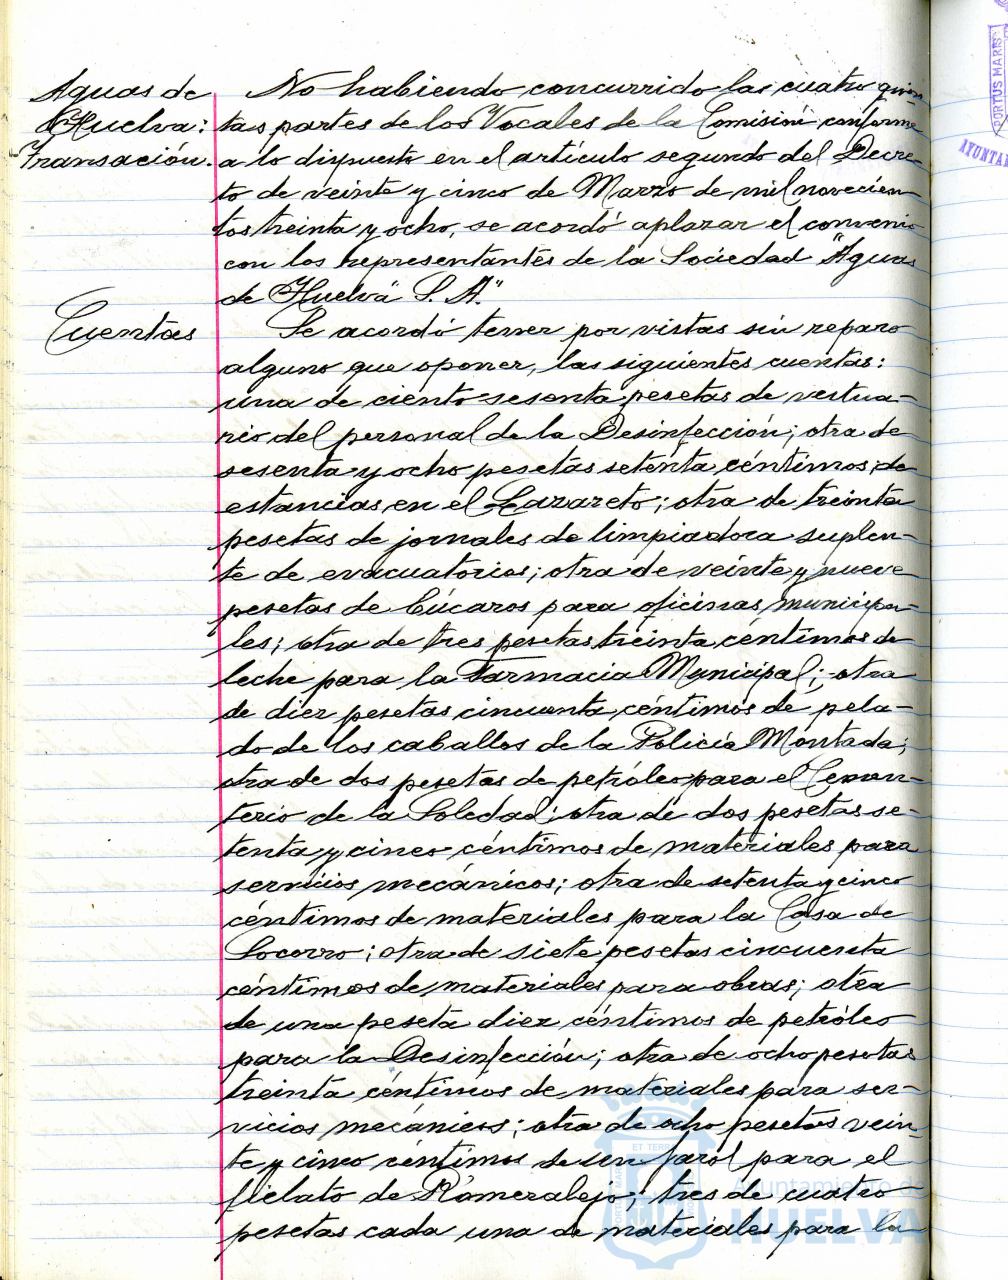 Aguas de
Huelva:
Transación.
No habiendo concurrido las cuatro quin-
tas partes de los Vocales de la Comisión conforme
a lo dispuesto en el artículo segundo del Decre-
to de veinte y cinco de Marzo de mil novecien-
tos treinta y ocho, se acordó aplazar el convenio
con los representantes de la Sociedad "Aguas
de Huelva S. A."
Cuentas
Se acordó tener por vistas sin reparo
alguno que oponer, las siguientes cuentas:
una de ciento sesenta pesetas de vestua-
rio del personal de la Desinfección; otra de
sesenta y ocho pesetas setenta céntimos de
estancias en el Lazareto; otra de treinta
pesetas de jornales de limpiadora suplen-
te de evacuatorios; otra de veinte y nueve
pesetas de búcaros para oficinas municipa-
les; otra de tres pesetas treinta céntimos de
leche para la Farmacia Municipal; otra
de diez pesetas cincuenta céntimos de pela-
do de los caballos de la Policía Montada;
otra de dos pesetas de petróleo para el Cemen-
terio de la Soledad; otra de dos pesetas se-
tenta y cinco céntimos de materiales para
servicios mecánicos; otra de setenta y cinco
céntimos de materiales para la Casa de
Socorro; otra de siete pesetas cincuenta
céntimos de materiales para obras; otra
de una peseta diez céntimos de petróleo
para la Desinfección; otra de ocho pesetas
treinta céntimos de materiales para ser-
vicios mecánicos; otra de ocho pesetas vein-
te y cinco céntimos de un farol para el
fielato de Romeralejo; tres de cuatro
pesetas cada una de materiales para la
PORTUS MARIS
AYUNTA
Ayuntamiento d
HUELVA